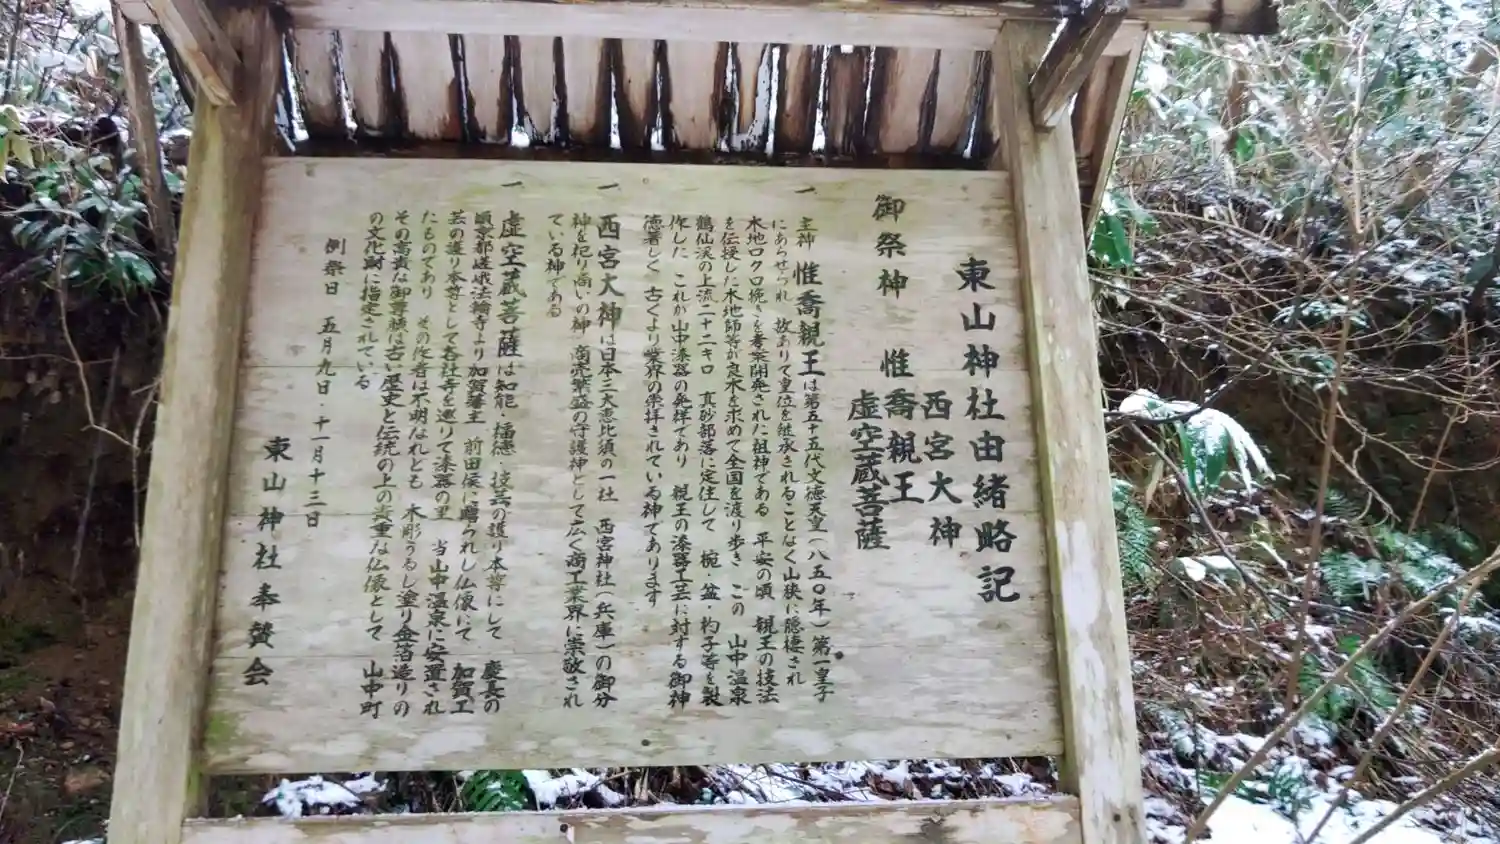 東山神社由緒略記
御祭神
西宮大神
惟喬親王
虚空蔵菩薩
一 主神 惟喬親王は第五十五代文徳天皇(八五〇年)第一皇子
にあらせられ 故ありて皇位を継承されることなく山狭に隠棲され
木地ロクロ挽きを考案開発された祖神である 平安の頃 親王の技法
を伝授した木地師等が良木を求めて全国を渡り歩き この 山中温泉
鶴仙渓の上流二十二キロ 真砂部落に定住して 椀・盆・杓子等を製
作した これが山中漆器の発祥であり 親王の漆器工芸に対する御神
徳著しく 古くより業界の崇拝されている神であります
一 西宮大神は日本三大恵比須の一社 西宮神社(兵庫)の御分
神を祀り商いの神 商売繁盛の守護神として広く商工業界に崇敬され
ている神である
一 虚空蔵菩薩は知能・福徳・技芸の護り本尊にして 慶長の
頃京都嵯峨法輪寺より加賀藩主 前田侯に贈られし仏像にて 加賀工
芸の護り本尊として各社寺を巡りて漆器の里 当山中温泉に安置され
たものであり その作者は不明なれども 木彫うるし塗り金箔造りの
その高貴な御尊顔は古い歴史と伝統の上の貴重な仏像として 山中町
の文化財に指定されている
例祭日 五月九日・十一月十三日
東山神社奉賛会